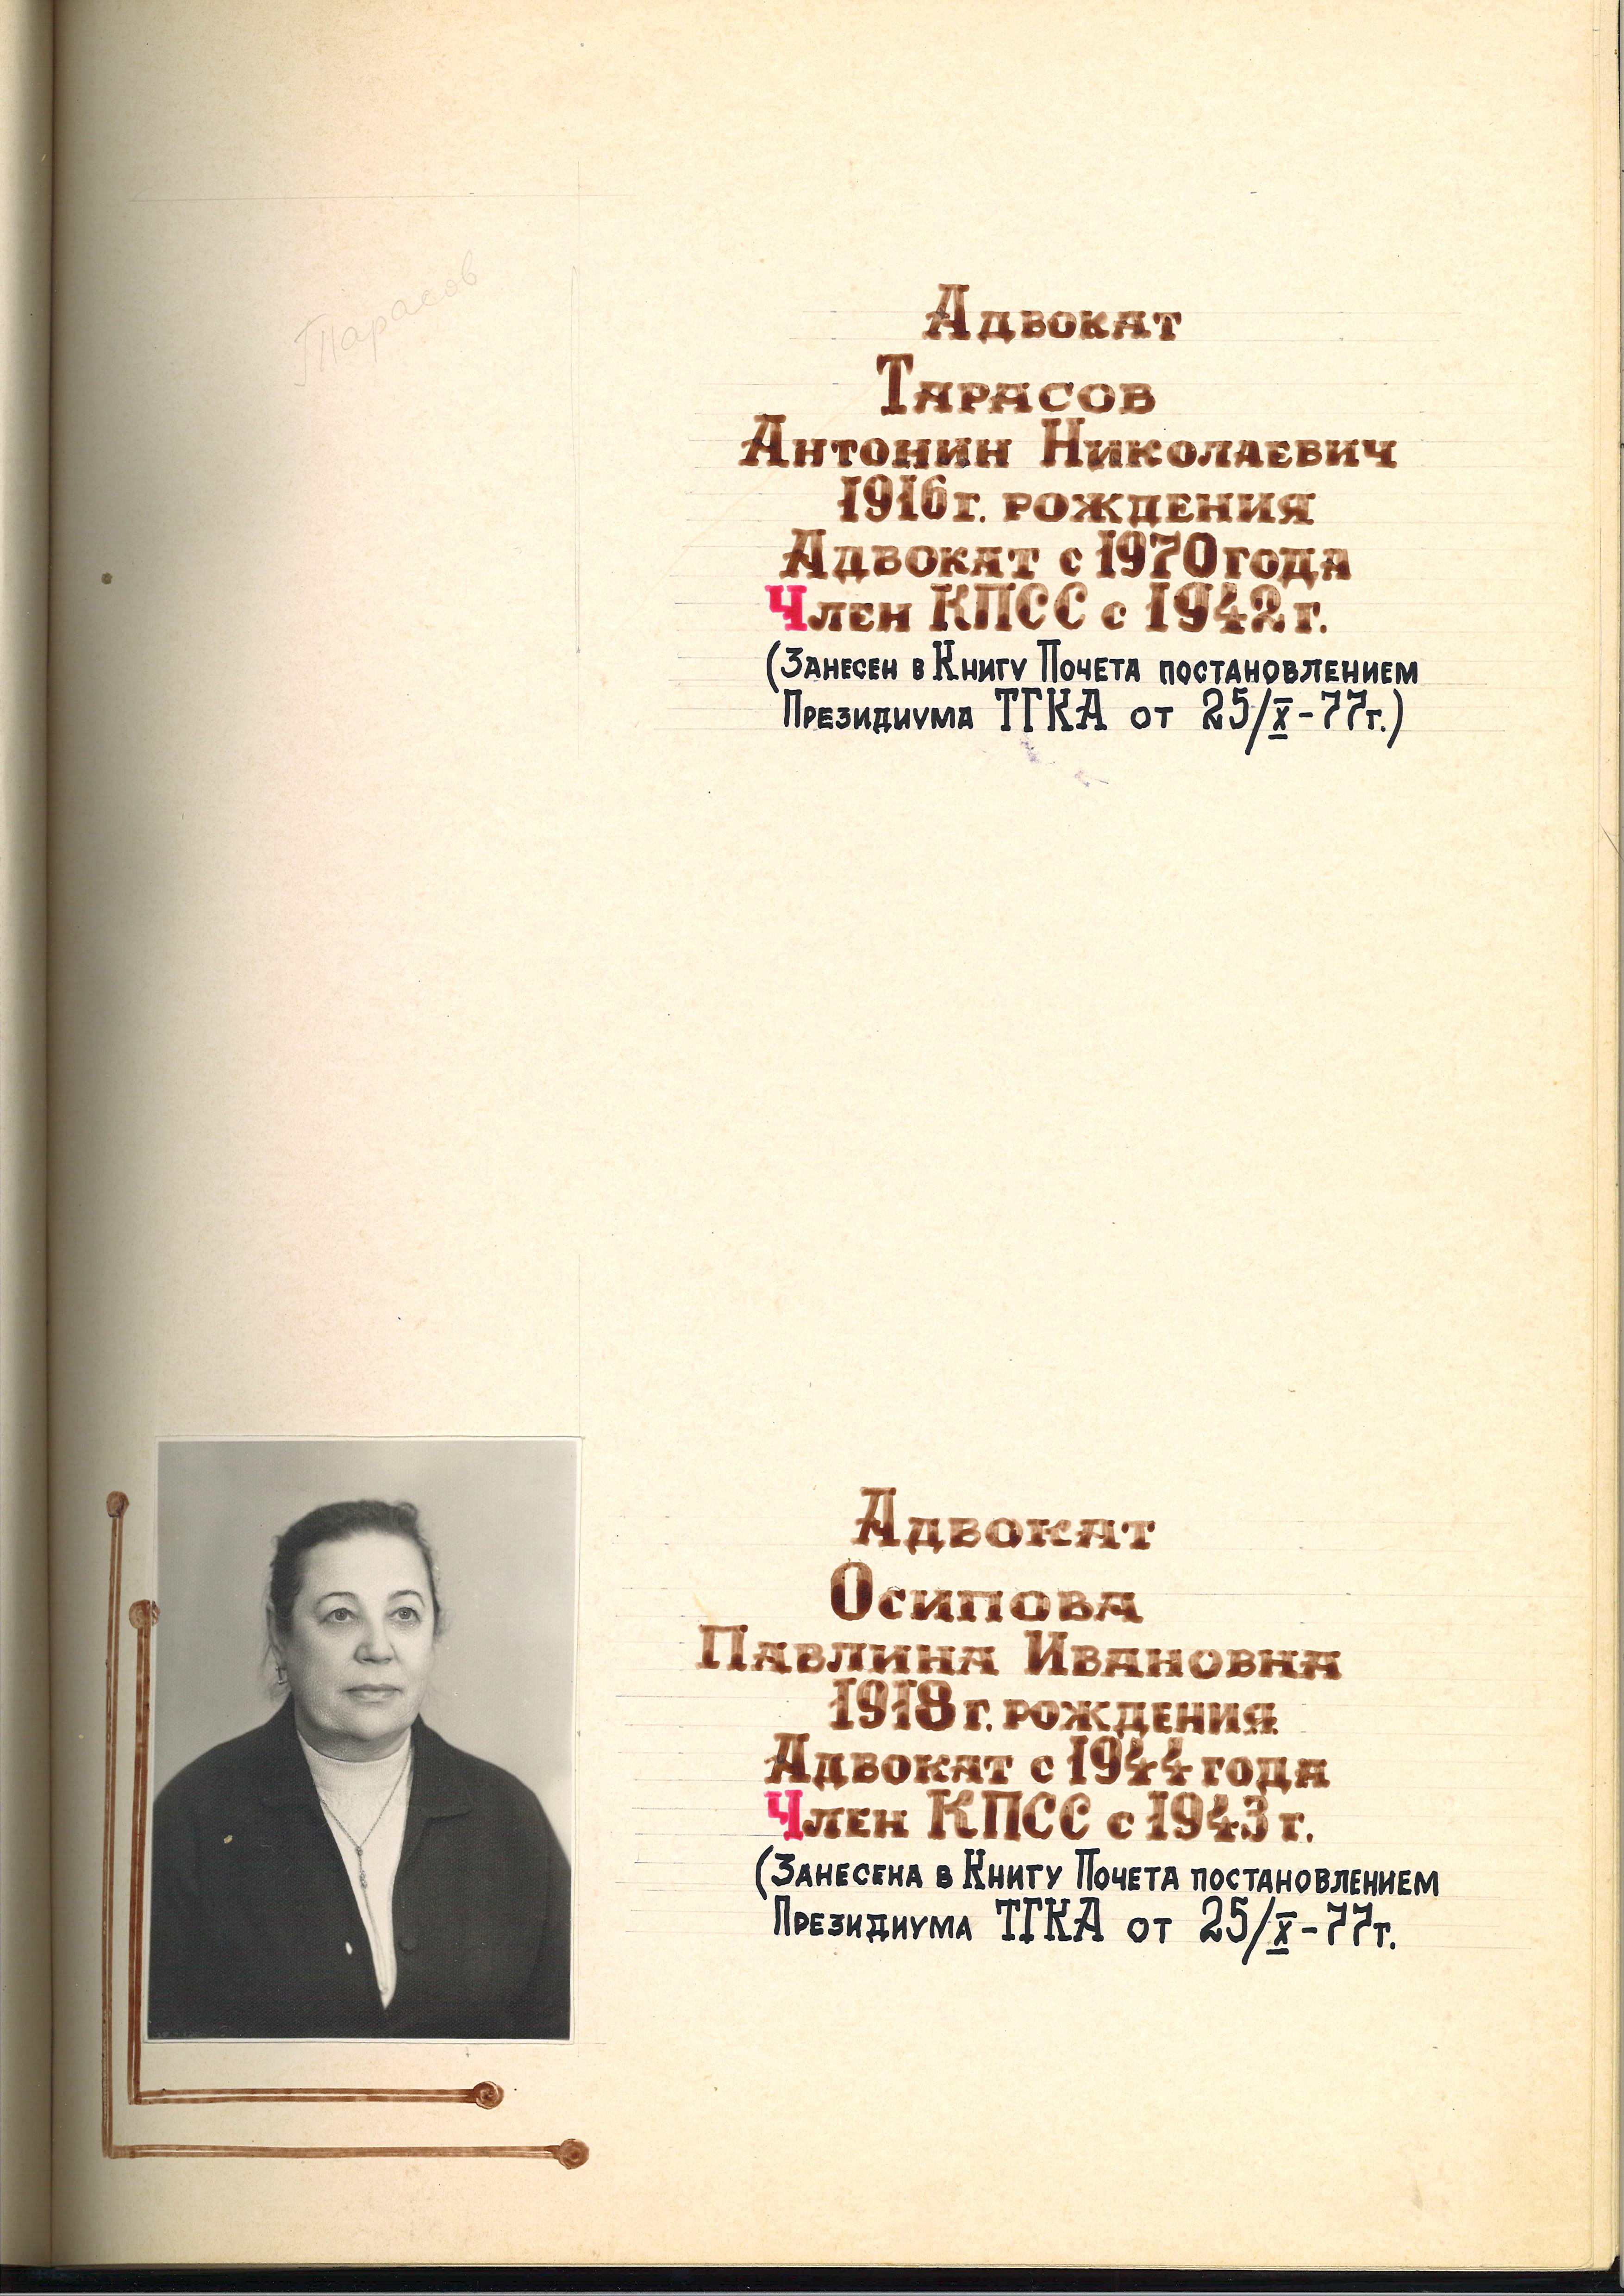 Тарасов
Адвокат
Тарасов
Антонин Николаевич
1916 г. рождения
Адвокат с 1970 года
Член КПСС с 1942 г.
(Занесен в Книгу Почета постановлением
Президиума ТГКА от 25/X-77г.)
Адвокат
Осипова
Павлина Ивановна
1918 г. рождения
Адвокат с 1944 года
Член КПСС с 1943 г.
(Занесена в Книгу Почета постановлением
Президиума ТГКА от 25/X-77г.